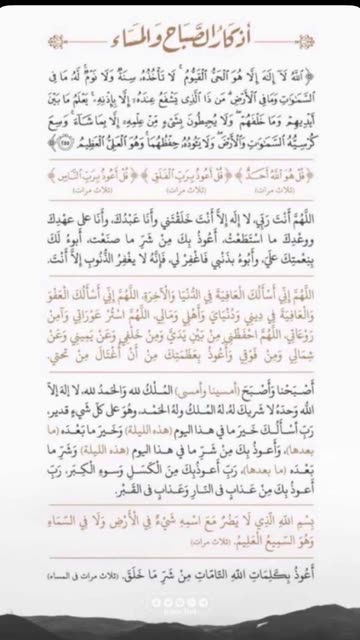 أذكار الصَّبَاح وَالمَسَاء
﴿ اللَّهُ لَآ إِلَٰهَ إِلَّا هُوَ الْحَيُّ الْقَيُّومُ ۚ لَا تَأْخُذُهُ سِنَةٌ وَلَا نَوْمٌ ۚ لَّهُ مَا فِي
السَّمَٰوَٰتِ وَمَا فِي الْأَرْضِ ۗ مَن ذَا الَّذِي يَشْفَعُ عِندَهُ إِلَّا بِإِذْنِهِ ۚ يَعْلَمُ مَا بَيْنَ
أَيْدِيهِمْ وَمَا خَلْفَهُمْ ۖ وَلَا يُحِيطُونَ بِشَيْءٍ مِّنْ عِلْمِهِ إِلَّا بِمَا شَآءَ ۚ وَسِعَ
كُرْسِيُّهُ السَّمَٰوَٰتِ وَالْأَرْضَ ۖ وَلَا يَئُودُهُ حِفْظُهُمَا ۚ وَهُوَ الْعَلِيُّ الْعَظِيمُ ﴿٢٥٥﴾ ﴾
﴿ قُلْ هُوَ اللَّهُ أَحَدٌ ﴾ ﴿ قُلْ أَعُوذُ بِرَبِّ الْفَلَقِ ﴾ ﴿ قُلْ أَعُوذُ بِرَبِّ النَّاسِ ﴾
(ثلاث مرات) (ثلاث مرات) (ثلاث مرات)
اللَّهُمَّ أَنْتَ رَبِّي، لا إِلَهَ إِلاَّ أَنْتَ خَلَقْتَنِي وأَنَا عَبْدُكَ، وأَنَا على عهْدِكَ
ووعْدِكَ ما اسْتَطَعْتُ، أَعُوذُ بِكَ مِنْ شَرِّ ما صنَعْتُ، أَبوءُ لَكَ
بِنِعْمتِكَ عَلَيَّ، وأَبُوءُ بذَنْبي فَاغْفِرْ لي، فَإِنَّهُ لا يغْفِرُ الذُّنُوبَ إِلاَّ أَنْتَ.
اللَّهُمَّ إِنِّي أَسْأَلُكَ العَافِيَةَ فِي الدُّنْيَا وَالآخِرَةِ، اللَّهُمَّ إِنِّي أَسْأَلُكَ العَفْوَ
وَالعَافِيَةَ فِي دِينِي وَدُنْيَايَ وَأَهْلِي وَمَالِي، اللَّهُمَّ اسْتُرْ عَوْرَاتِي وَآمِنْ
رَوْعَاتِي، اللَّهُمَّ احْفَظْنِي مِنْ بَيْنِ يَدَيَّ وَمِنْ خَلْفِي وَعَنْ يَمِينِي وَعَنْ
شِمَالِي وَمِنْ فَوْقِي وَأَعُوذُ بِعَظَمَتِكَ مِنْ أَنْ أُغْتَالَ مِنْ تَحْتِي.
أَصْبَحْنا وَأَصْبَحَ (أمسينا وأمسى) المُلْكُ لله وَالحَمدُ لله، لا إلهَ إلاّ
اللهُ وَحدَهُ لا شَريكَ لهُ، لهُ المُلكُ ولهُ الحَمْد، وهُوَ على كلّ شَيءٍ قدير،
رَبِّ أسْألُكَ خَيرَ ما في هذا اليوم (هذه الليلة) وَخَيرَ ما بَعْدَه (ما
بعدها)، وَأَعوذُ بِكَ مِنْ شَرِّ ما في هذا اليوم (هذه الليلة) وَشَرِّ ما
بَعْدَه (ما بعدها)، رَبِّ أَعوذُبِكَ مِنَ الْكَسَلِ وَسوءِ الْكِبَر، رَبِّ
أَعوذُ بِكَ مِنْ عَذابٍ في النّارِ وَعَذابٍ في القَبْر.
بِسْمِ اللهِ الَّذِي لَا يَضُرُّ مَعَ اسْمِهِ شَيْءٌ فِي الْأَرْضِ وَلَا فِي السَّمَاءِ
وَهُوَ السَّمِيعُ الْعَلِيمُ. (ثلاث مرات)
أَعُوذُ بِكَلِمَاتِ اللهِ التَّامَّاتِ مِنْ شَرِّ مَا خَلَقَ. (ثلاث مرات في المساء)